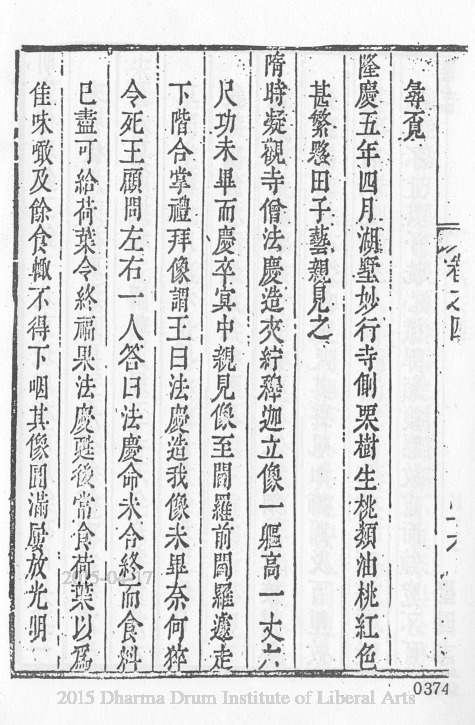 卷之四
十六
彝覓
隆慶五年四月湖墅妙行寺側栗樹生桃類油桃紅色
甚繁夥田子藝親見之
隋時凝觀寺僧法慶造夾紵釋迦立像一軀高一丈六
尺功未畢而慶卒寘中親見像至閻羅前閻羅遽走
下階合掌禮拜像謂王曰法慶造我像未畢奈何猝
令死王顧問左右一人答曰法慶命未合終而食料
已盡可給荷葉令終福果法慶甦後常食荷葉以爲
佳味噉及餘食輙不得下咽其像圓滿屢放光明
2015-04-17
0374
2015 Dharma Drum Institute of Liberal Arts